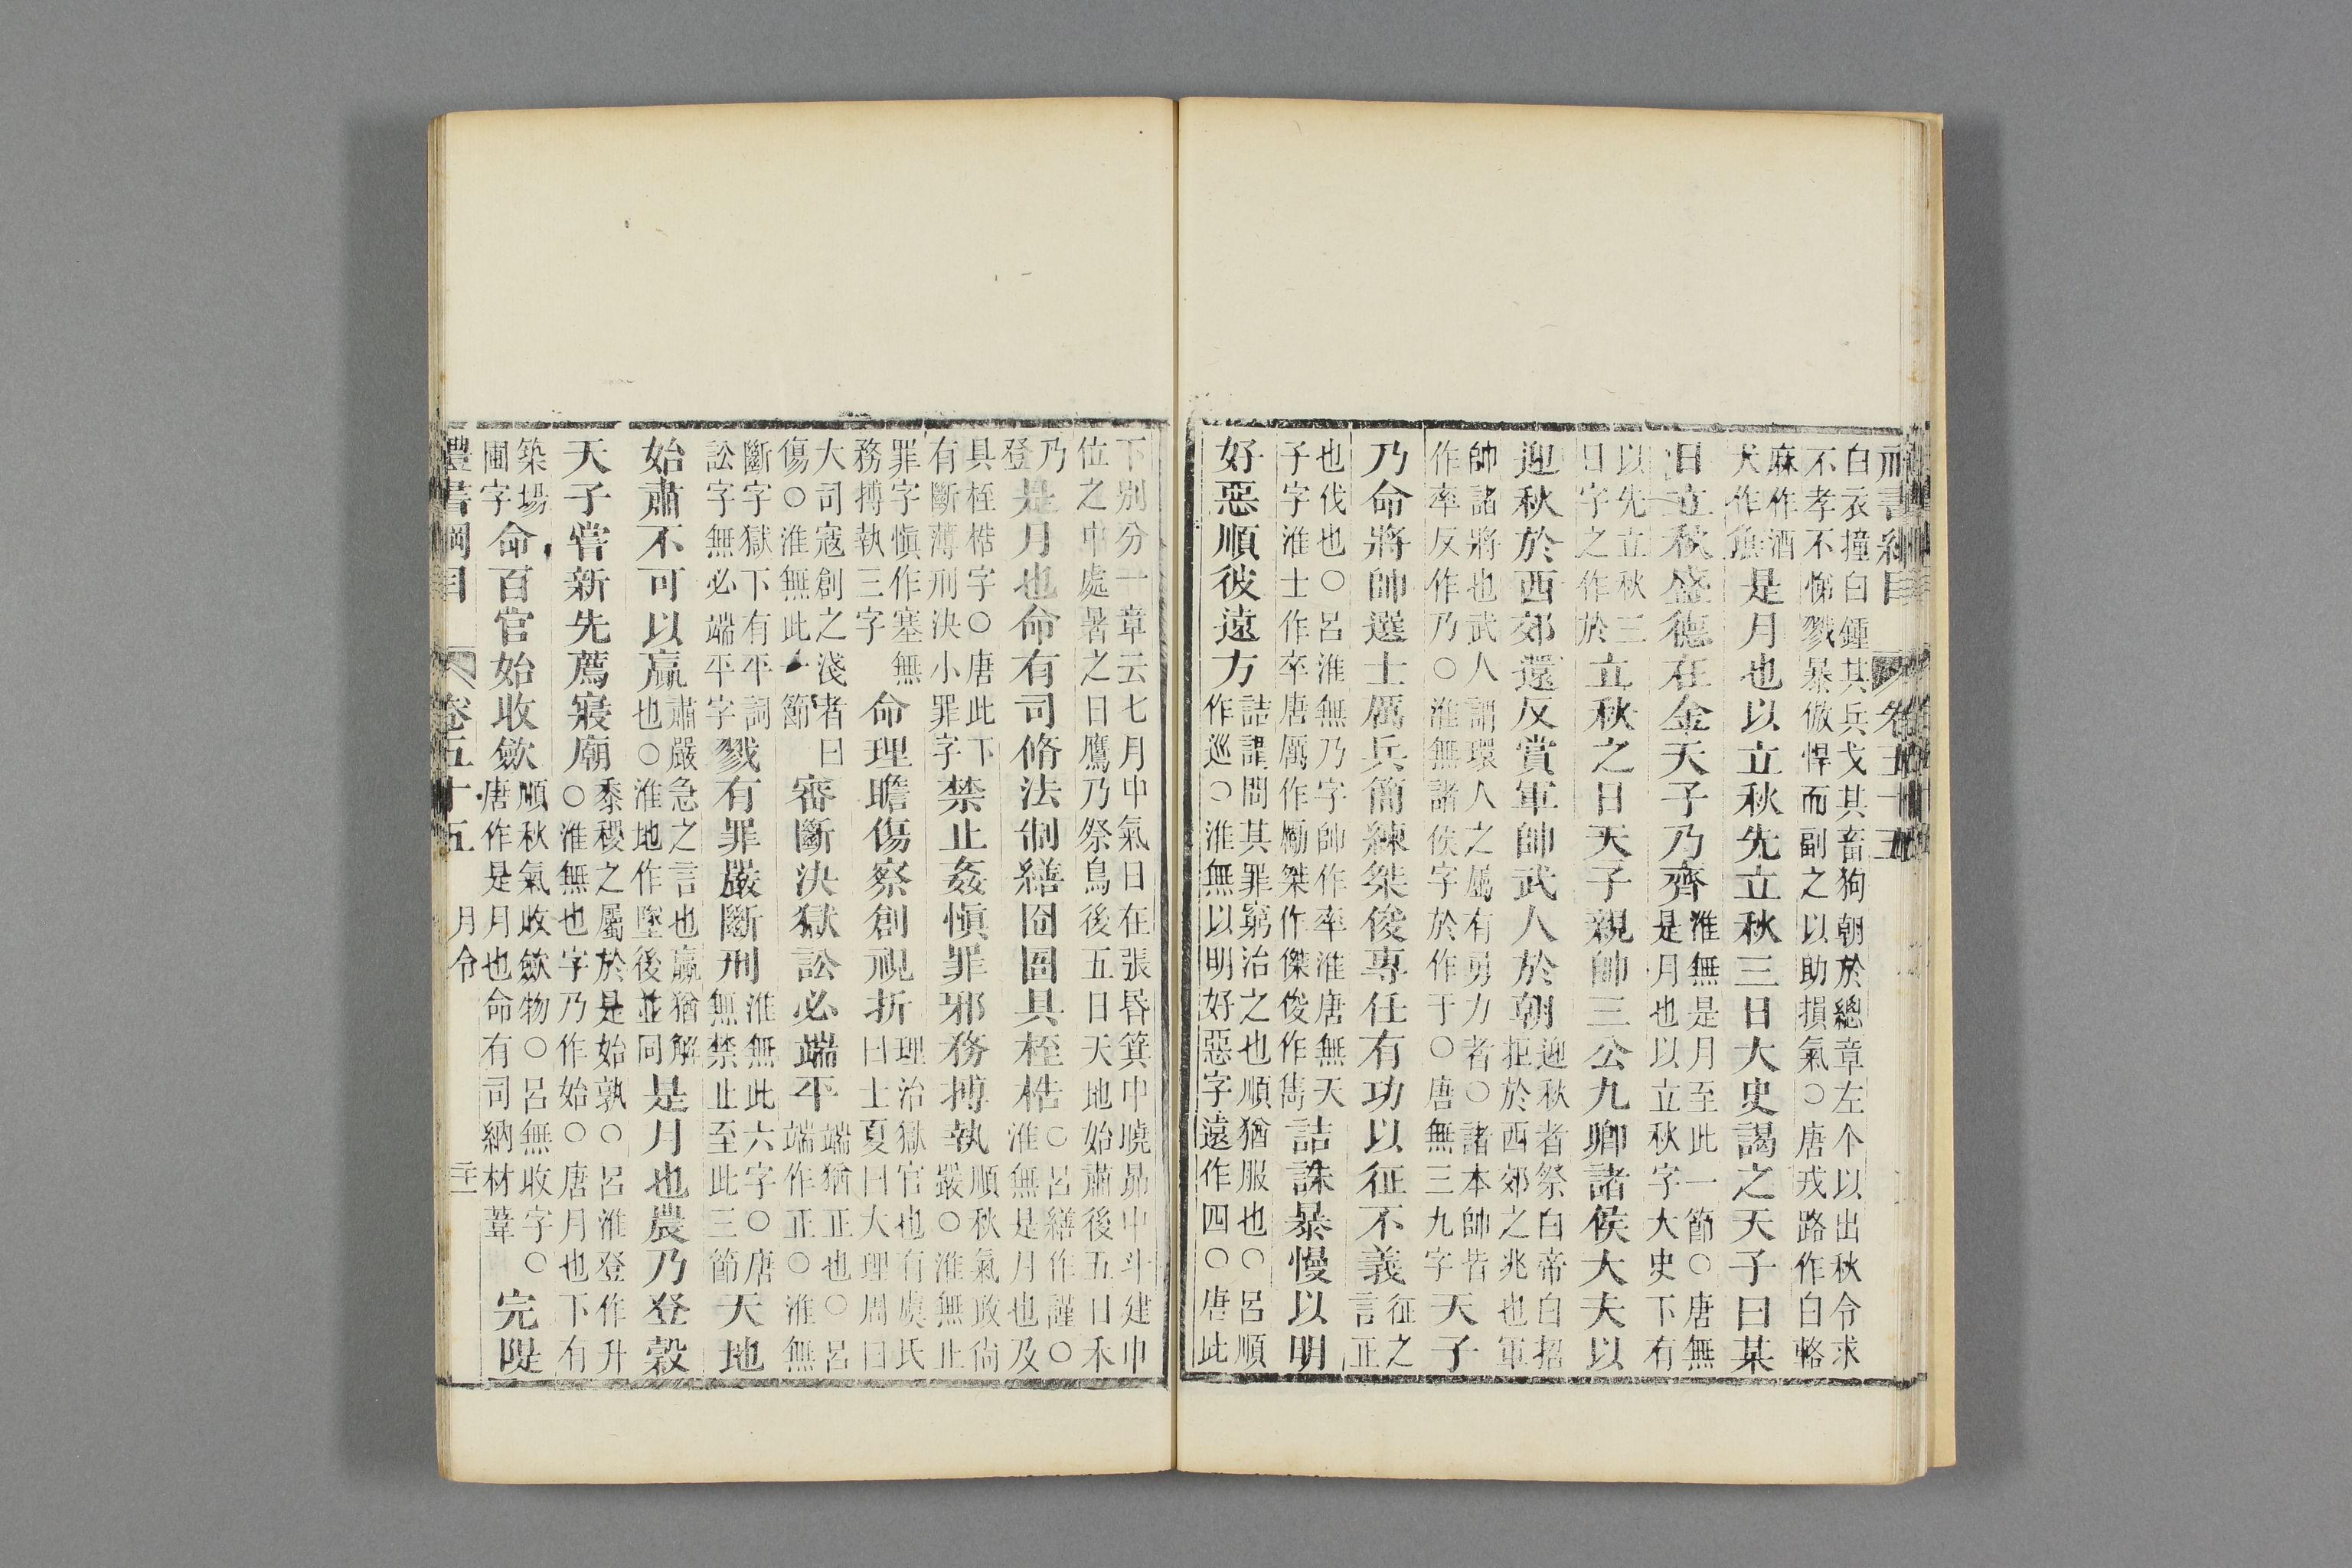 禮書綱目 卷五十五
白衣撞白鍾其兵戈其畜狗朝於總章左个以出秋令求
不孝不悌戮暴傲悍而副之以助損氣○唐戎路作白輅
麻作酒
犬作魚是月也以立秋先立秋三日大史謁之天子曰某
日立秋盛德在金天子乃齊淮無是月至此一節○唐無
是月也以立秋字大史下有
以先立秋三
日字之作於立秋之日天子親帥三公九卿諸侯大夫以
迎秋於西郊還反賞軍帥武人於朝迎秋者祭白帝白招
拒於西郊之兆也軍
帥諸將也武人謂環人之屬有勇力者○諸本帥皆
作率反作乃○淮無諸侯字於作于○唐無三九字天子
乃命將帥選士厲兵簡練桀俊專任有功以征不義征之
言正
也伐也○呂淮無乃字帥作率淮唐無天
子字淮士作卒唐厲作勵桀作傑俊作雋詰誅暴慢以明
好惡順彼遠方詰謂問其罪窮治之也順猶服也○呂順
作巡○淮無以明好惡字遠作四○唐此
下別分一章云七月中氣日在張昏箕中曉昴中斗建申
位之中處暑之日鷹乃祭鳥後五日天地始肅後五日禾
乃
登是月也命有司脩法制繕囹圄具桎梏○呂繕作謹○
淮無是月也及
具桎梏字○唐此下
有斷薄刑決小罪字禁止姦愼罪邪務搏執順秋氣政尙
嚴○淮無止
罪字愼作塞無
務搏執三字命理瞻傷察創視折理治獄官也有虞氏
曰士夏曰大理周曰
大司寇創之淺者曰
傷○淮無此一節審斷決獄訟必端平端猶正也○呂
端作正○淮無
斷字獄下有平詞
訟字無必端平字戮有罪嚴斷刑淮無此六字○唐
無禁止至此三節天地
始肅不可以贏肅嚴急之言也贏猶解
也○淮地作墜後並同是月也農乃登穀
天子嘗新先薦寢廟黍稷之屬於是始孰○呂淮登作升
○淮無也字乃作始○唐月也下有
築場
圃字命百官始收斂順秋氣收斂物○呂無收字○
唐作是月也命有司納材葦完隄
禮書綱目 卷五十五 月令